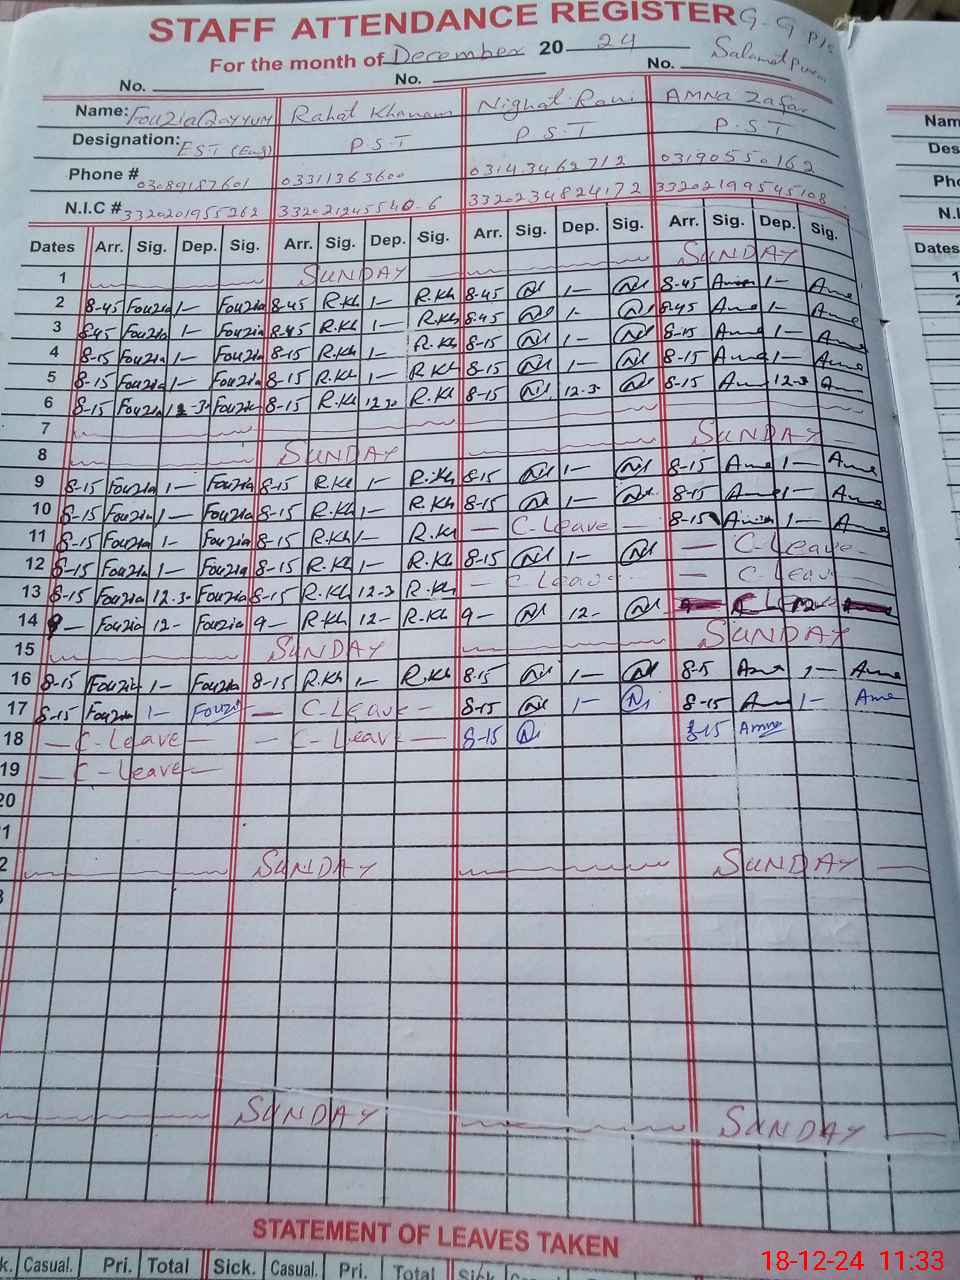 STAFF ATTENDANCE REGISTER G-G P/S
For the month of December 20 24 Salamatpura
No. No. No.
Name: Fouzia Qayyum Rahat Khanam Nighat Rani AMNA Zafar
Designation: EST (Eng) P.S.T P.S.T P.S.T
Phone # 03089187601 03311363600 03143462712 03190550162
N.I.C # 3320201955262 332021245540-6 3320234824172 3320219954510 8
Dates Arr. Sig. Dep. Sig. Arr. Sig. Dep. Sig. Arr. Sig. Dep. Sig. Arr. Sig. Dep. Sig.
1 SUNDAY SUNDAY
2 8-45 Fouzia 1- Fouzia 8-45 R.Kh 1- R.Kh 8-45 1- 8-45 Amna 1- Amna
3 8-45 Fouzia 1- Fouzia 8-45 R.Kh 1- R.Kh 8-45 1- 8-45 Amna 1- Amna
4 8-15 Fouzia 1- Fouzia 8-15 R.Kh 1- R.Kh 8-15 1- 8-15 Amna 1- Amna
5 8-15 Fouzia 1- Fouzia 8-15 R.Kh 1- R.Kh 8-15 1- 8-15 Amna 1- Amna
6 8-15 Fouzia 12-30 Fouzia 8-15 R.Kh 12 30 R.Kh 8-15 12-3 8-15 Am 12-3
7
8 SUNDAY SUNDAY
9 8-15 Fouzia 1- Fouzia 8-15 R.Kh 1- R.Kh 8-15 1- 8-15 Amna 1- Amna
10 8-15 Fouzia 1- Fouzia 8-15 R.Kh 1- R.Kh 8-15 1- 8-15 Amna 1- Amna
11 8-15 Fouzia 1- Fouzia 8-15 R.Kh 1- R.Kh - C-Leave - 8-15 Amna 1- Amna
12 8-15 Fouzia 1- Fouzia 8-15 R.Kh 1- R.Kh 8-15 1- - C-Leave -
13 8-15 Fouzia 12-3- Fouzia 8-15 R.Kh 12-3 R.Kh - C Leave - - C Leave
14 9- Fouzia 12- Fouzia 9- R.Kh 12- R.Kh 9- 12- C Leave
15 SUNDAY SUNDAY
16 8-15 Fouzia 1- Fouzia 8-15 R.Kh 1- R.Kh 8-15 1- 8-5 Amna 1- Amna
17 8-15 Fouzia 1- Fouzia - C-Leave - 8-15 1- 8-15 Amna 1- Amna
18 - C-Leave - - C-Leave - 8-15 8-15 Amna
19 - C-Leave -
20
1
2 SUNDAY SUNDAY
SUNDAY SUNDAY
STATEMENT OF LEAVES TAKEN
k. Casual. Pri. Total Sick. Casual. Pri. Total Sick
Nam
Des
Pho
N.I.
Dates
1
2
18-12-24 11:33